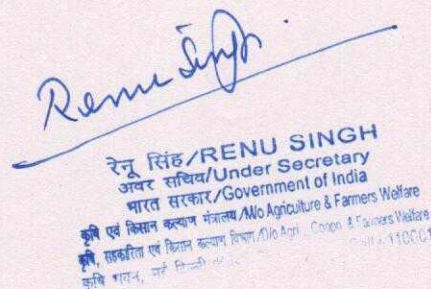 Renu Singh
रेनू सिंह/RENU SINGH
अवर सचिव/Under Secretary
भारत सरकार/Government of India
कृषि एवं किसान कल्याण मंत्रालय/M/o Agriculture & Farmers Welfare
कृषि, सहकारिता एवं किसान कल्याण विभाग/D/o Agri., & Farmers Welfare
कृषि भवन, नई 110001